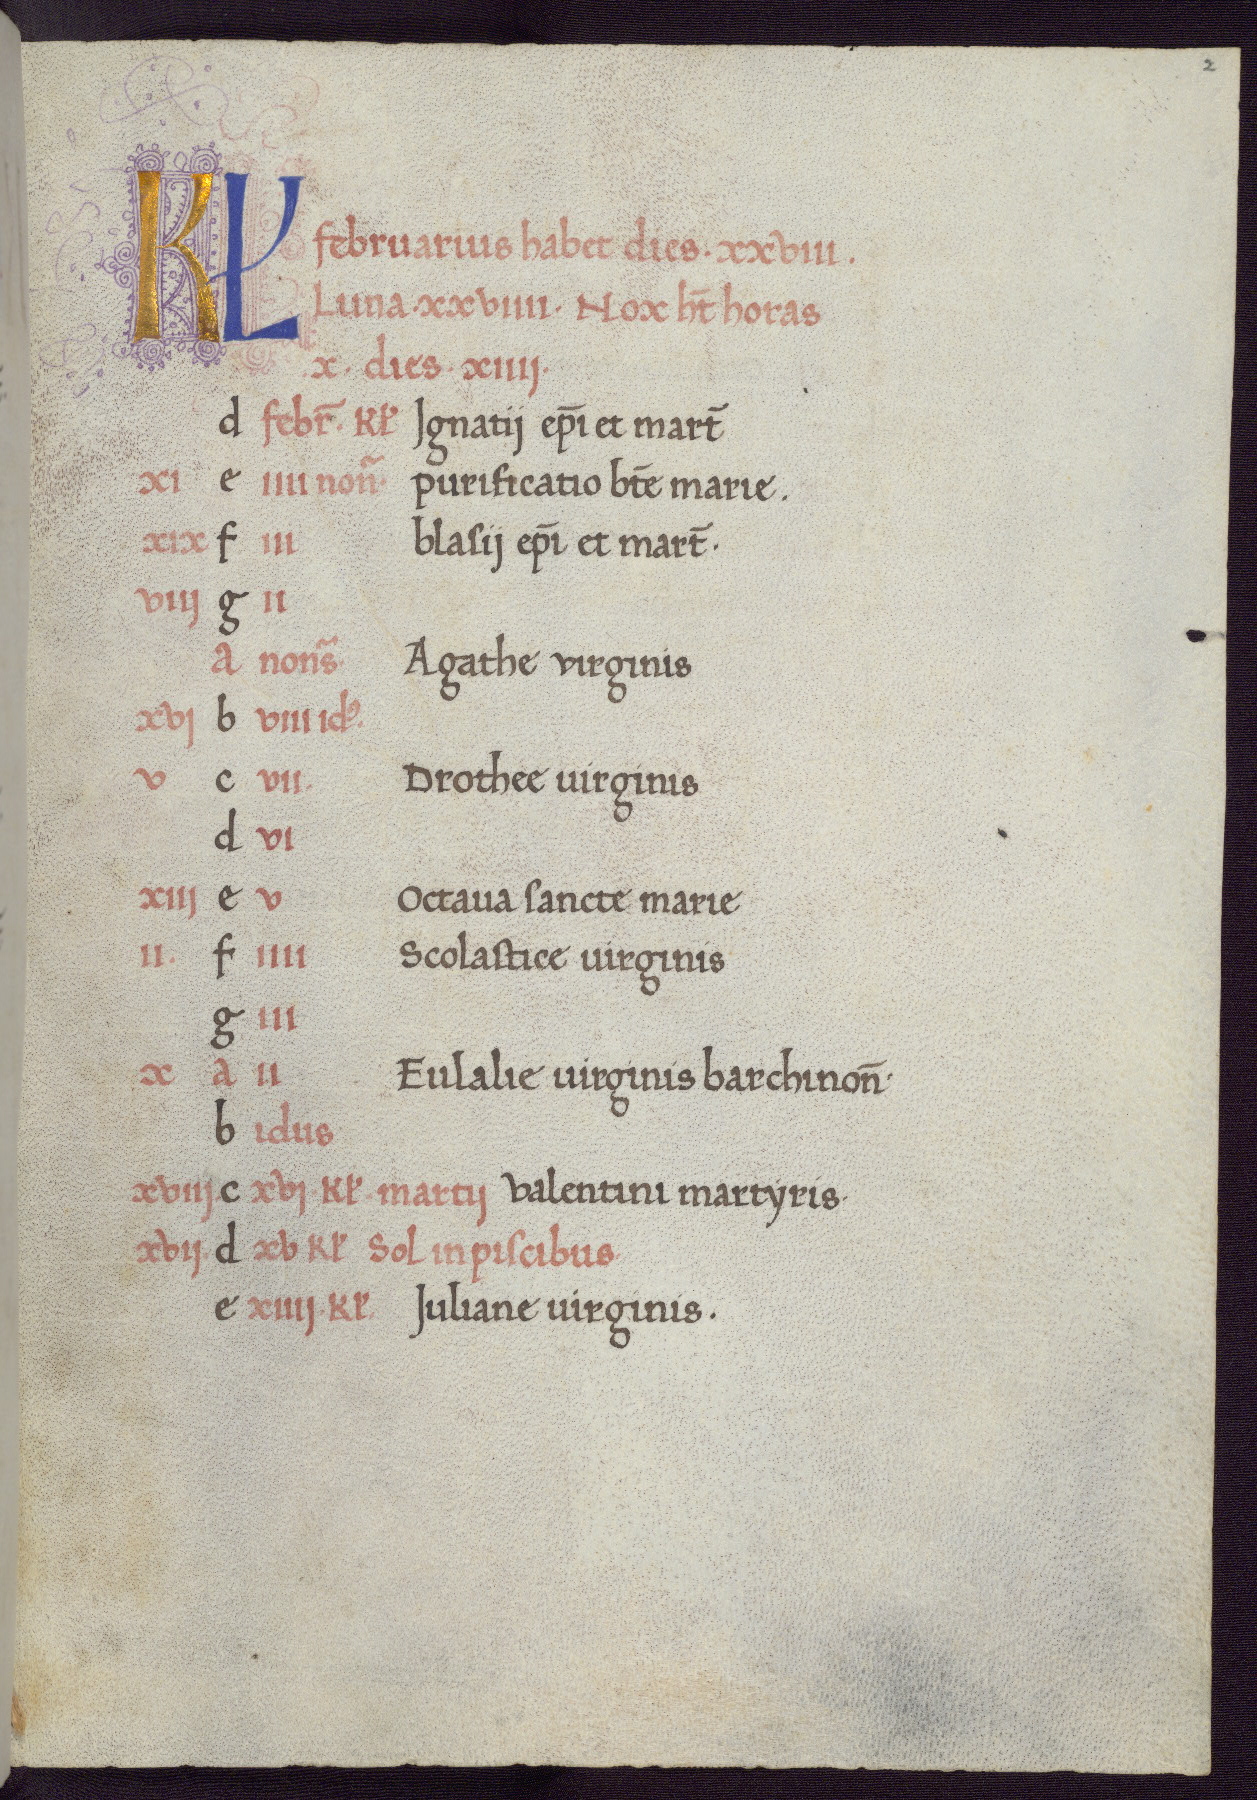 2
KL februarius habet dies · xxviii .
Luna · xxviiii · Nox ht̄ horas
x · dies · xiiij ·
d febr̄ · kl Jgnatij ep̄i et mart̄
xi e iiii non̄ · purificatio bt̄e marie .
xix f iii blasij ep̄i et mart̄ ·
viij g ii
a non̄s · Agathe virginis
xvj b viii id⁹ .
v c vii · Drothee uirginis
d vi
xiij e v Octaua sancte marie
ii · f iiii Scolastice uirginis
g iii
x a ii Eulalie uirginis barchinon̄ ·
b idus
xviij c xvj · kl · martij valentini martyris ·
xvij · d xv kl Sol in piscibus ·
e xiiij · kl Juliane uirginis .